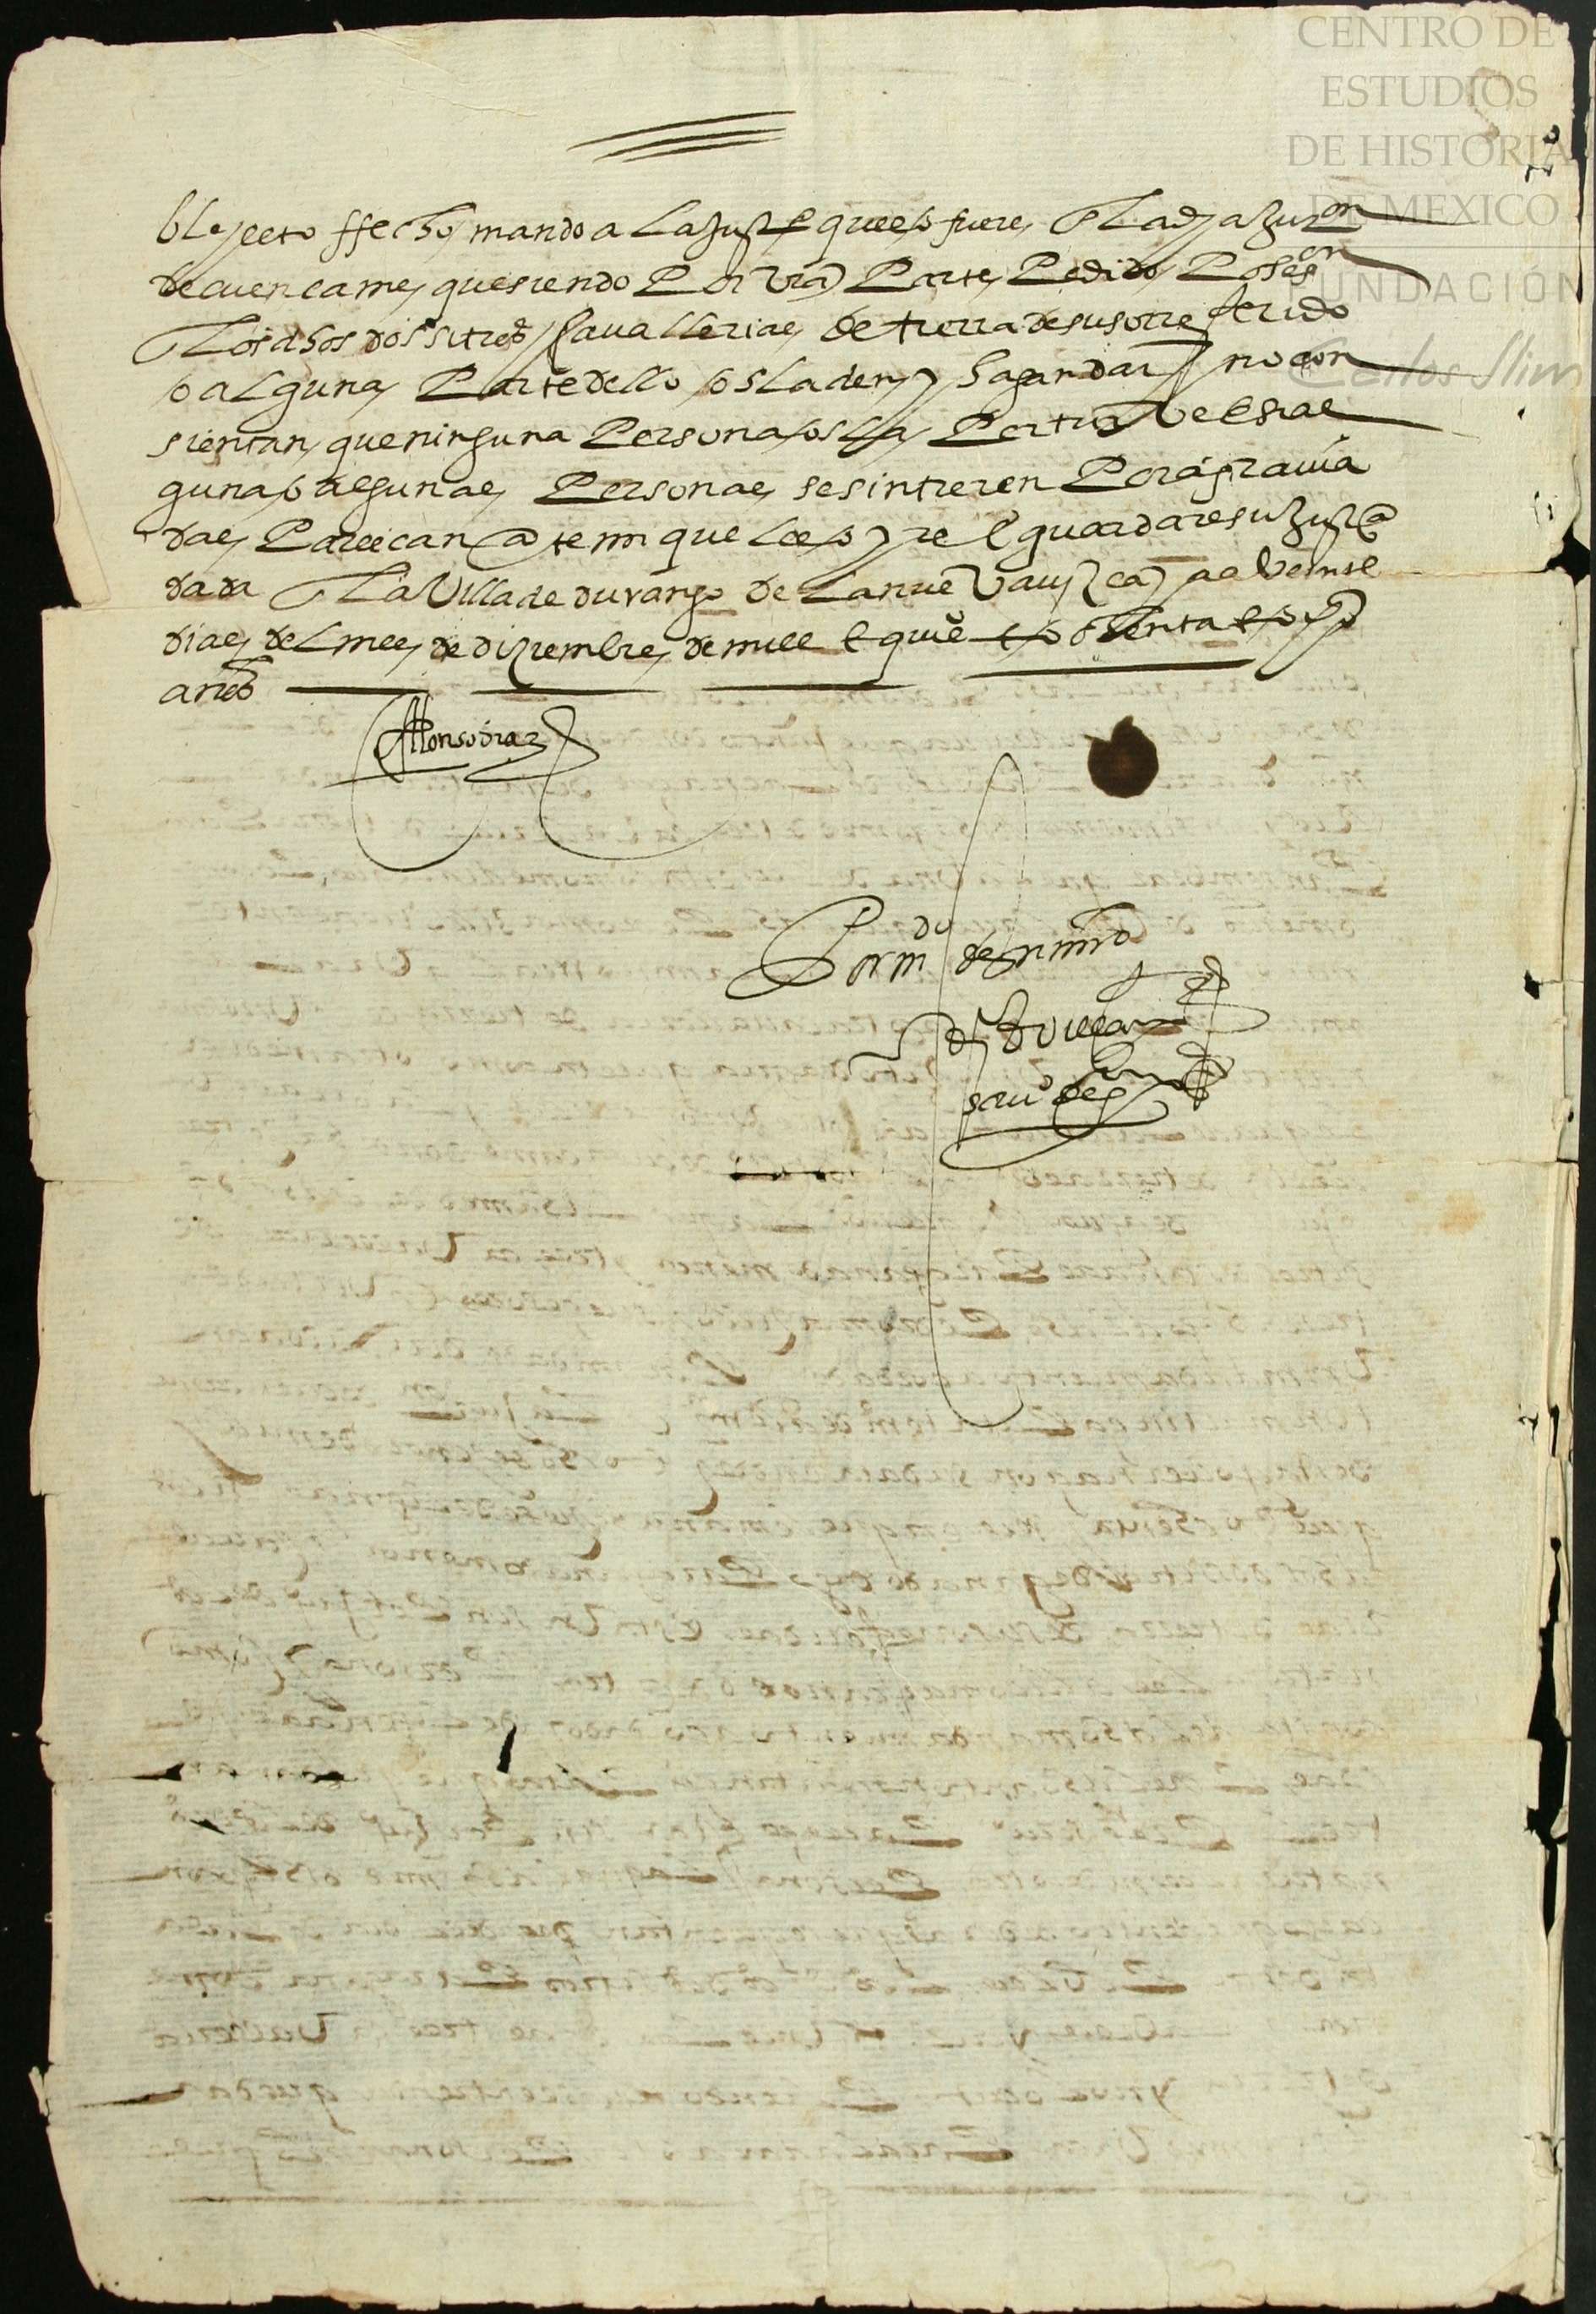 CENTRO DE
ESTUDIOS
DE HISTORIA
DE MEXICO
FUNDACIÓN
Carlos Slim
ble y esto ffecho mando a la just^a que es o fuere de la dha jur^on
de cuencame que siendo Por v^ra Parte Pedido Poses^on
de los dhos dos sitios y cauallerias de tierra desuso rreferido
o alguna Parte dello os la den y hagan dar y no con
sientan que ninguna Persona os la Perturbe e si al
guna o algunas Personas se sintieren Por agrauia
das Parezcan ante mi que les oyre e guardare su just^a
dada en la Villa de durango de la nueva viz^ca a veinte
dias del mes de diziembre de mill e qui^os e ochenta e
años
Alonso diaz
Por m^do de su m^rd
s^no de g^on